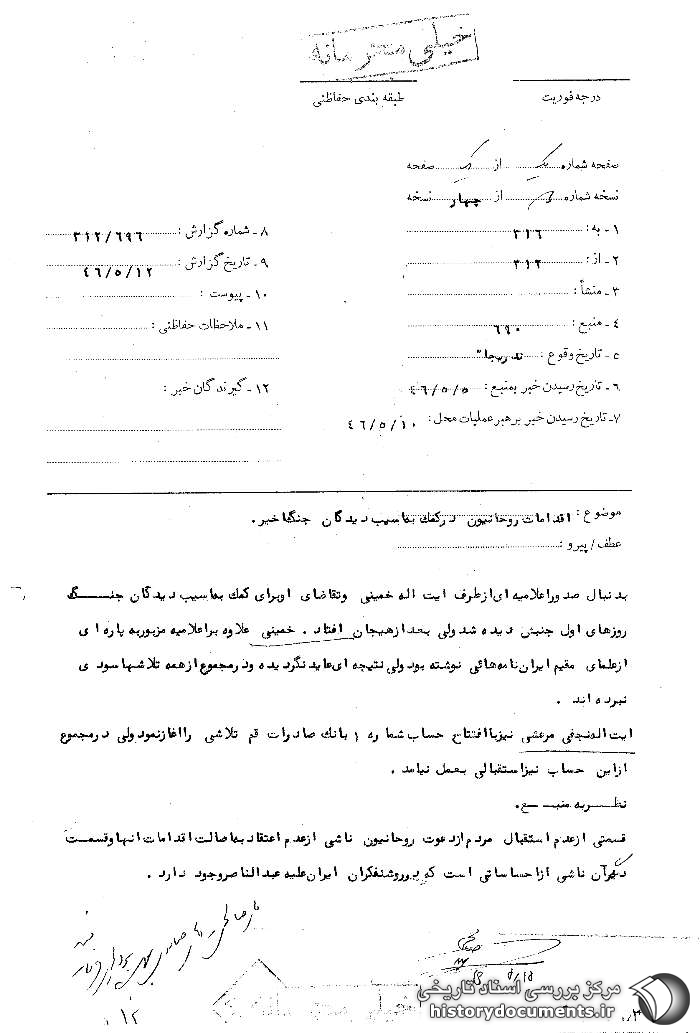 خیلی محرمانه
درجه فوریت
طبقه بندی حفاظتی
صفحه شماره یک از یک صفحه
نسخه شماره از چهار نسخه
۱ـ به : ۳۱۶
۲ـ از : ۳۱۲
۳ـ منشأ :
۴ـ منبع : ۶۹۰
۵ـ تاریخ وقوع : تدریجا"
۶ـ تاریخ رسیدن خبر بمنبع : ۴۶/۵/۵
۷ـ تاریخ رسیدن خبر برهبر عملیات محل : ۴۶/۵/۱۰
۸ـ شماره گزارش : ۳۱۲/۶۹۶
۹ـ تاریخ گزارش : ۴۶/۵/۱۲
۱۰ـ پیوست :
۱۱ـ ملاحظات حفاظتی :
۱۲ـ گیرندگان خبر :
موضوع : اقدامات روحانیون در کمک بآسیب دیدگان جنگ اخیر .
عطف / پیرو :
بدنبال صدور اعلامیه ای از طرف ایت اله خمینی و تقاضای او برای کمک بآسیب دیدگان جنگ
روزهای اول جنبش دیده شد ولی بعد از هیجان افتاد . خمینی علاوه بر اعلامیه مزبور به پاره ای
از علمای مقیم ایران نامه هائی نوشته بود ولی نتیجه ای عاید نگردیده و در مجموع از همه تلاشها سودی
نبرده اند .
ایت اله نجفی مرعشی نیز با افتتاح حساب شماره ۱ بانک صادرات قم تلاشی را آغاز نمود ولی در مجموع
از این حساب نیز استقبالی بعمل نیامد .
نظریه منبع .
قسمتی از عدم استقبال مردم از دعوت روحانیون ناشی از عدم اعتقاد به اصالت اقدامات انها و قسمت
دیگر آن ناشی از احساساتی است که در روشنفکران ایران علیه عبدالناصر وجود دارد .
خیلی محرمانه
مرکز بررسی اسناد تاریخی
historydocuments.ir